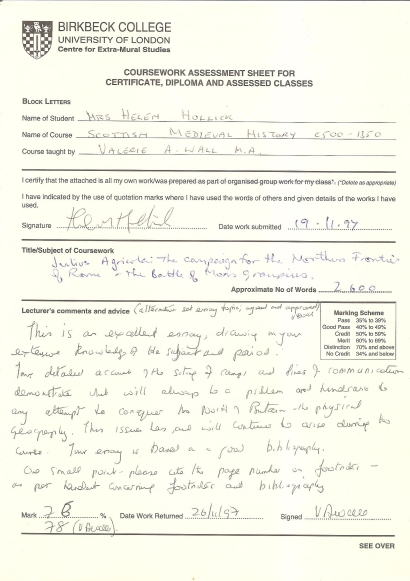 BIRKBECK COLLEGE
UNIVERSITY OF LONDON
Centre for Extra-Mural Studies
COURSEWORK ASSESSMENT SHEET FOR
CERTIFICATE, DIPLOMA AND ASSESSED CLASSES
BLOCK LETTERS
Name of Student MRS HELEN HOLLICK
Name of Course SCOTTISH MEDIEVAL HISTORY c500-1350
Course taught by VALERIE A. WALL M.A.
I certify that the attached is all my own work/was prepared as part of organised group work for my class*. (*Delete as appropriate)
I have indicated by the use of quotation marks where I have used the words of others and given details of the works I have
used.
Signature Date work submitted 19.11.97
Title/Subject of Coursework
Julius Agricola: The campaign for the Northern Frontier
of Rome - The Battle of Mons Graupius.
Approximate No of Words 2600
Lecturer's comments and advice (alternative set essay topic, agreed and approved)
Marking Scheme
Pass 35% to 39%
Good Pass 40% to 49%
Credit 50% to 59%
Merit 60% to 69%
Distinction 70% and above
No Credit 34% and below
This is an excellent essay, drawing on your
extensive knowledge of the subject and period.
Your detailed account of the setup of ranges and lines of communication
demonstrate what will always be a problem and hindrance to
any attempt to conquer the North of Britain - the physical
geography. This issue has and will continue to arise during the
course. Your essay is based on a good bibliography.
One small point - please cite the page number in footnotes -
as per handout concerning footnotes and bibliography
Mark 78 % Date Work Returned 26/11/97 Signed
78
SEE OVER